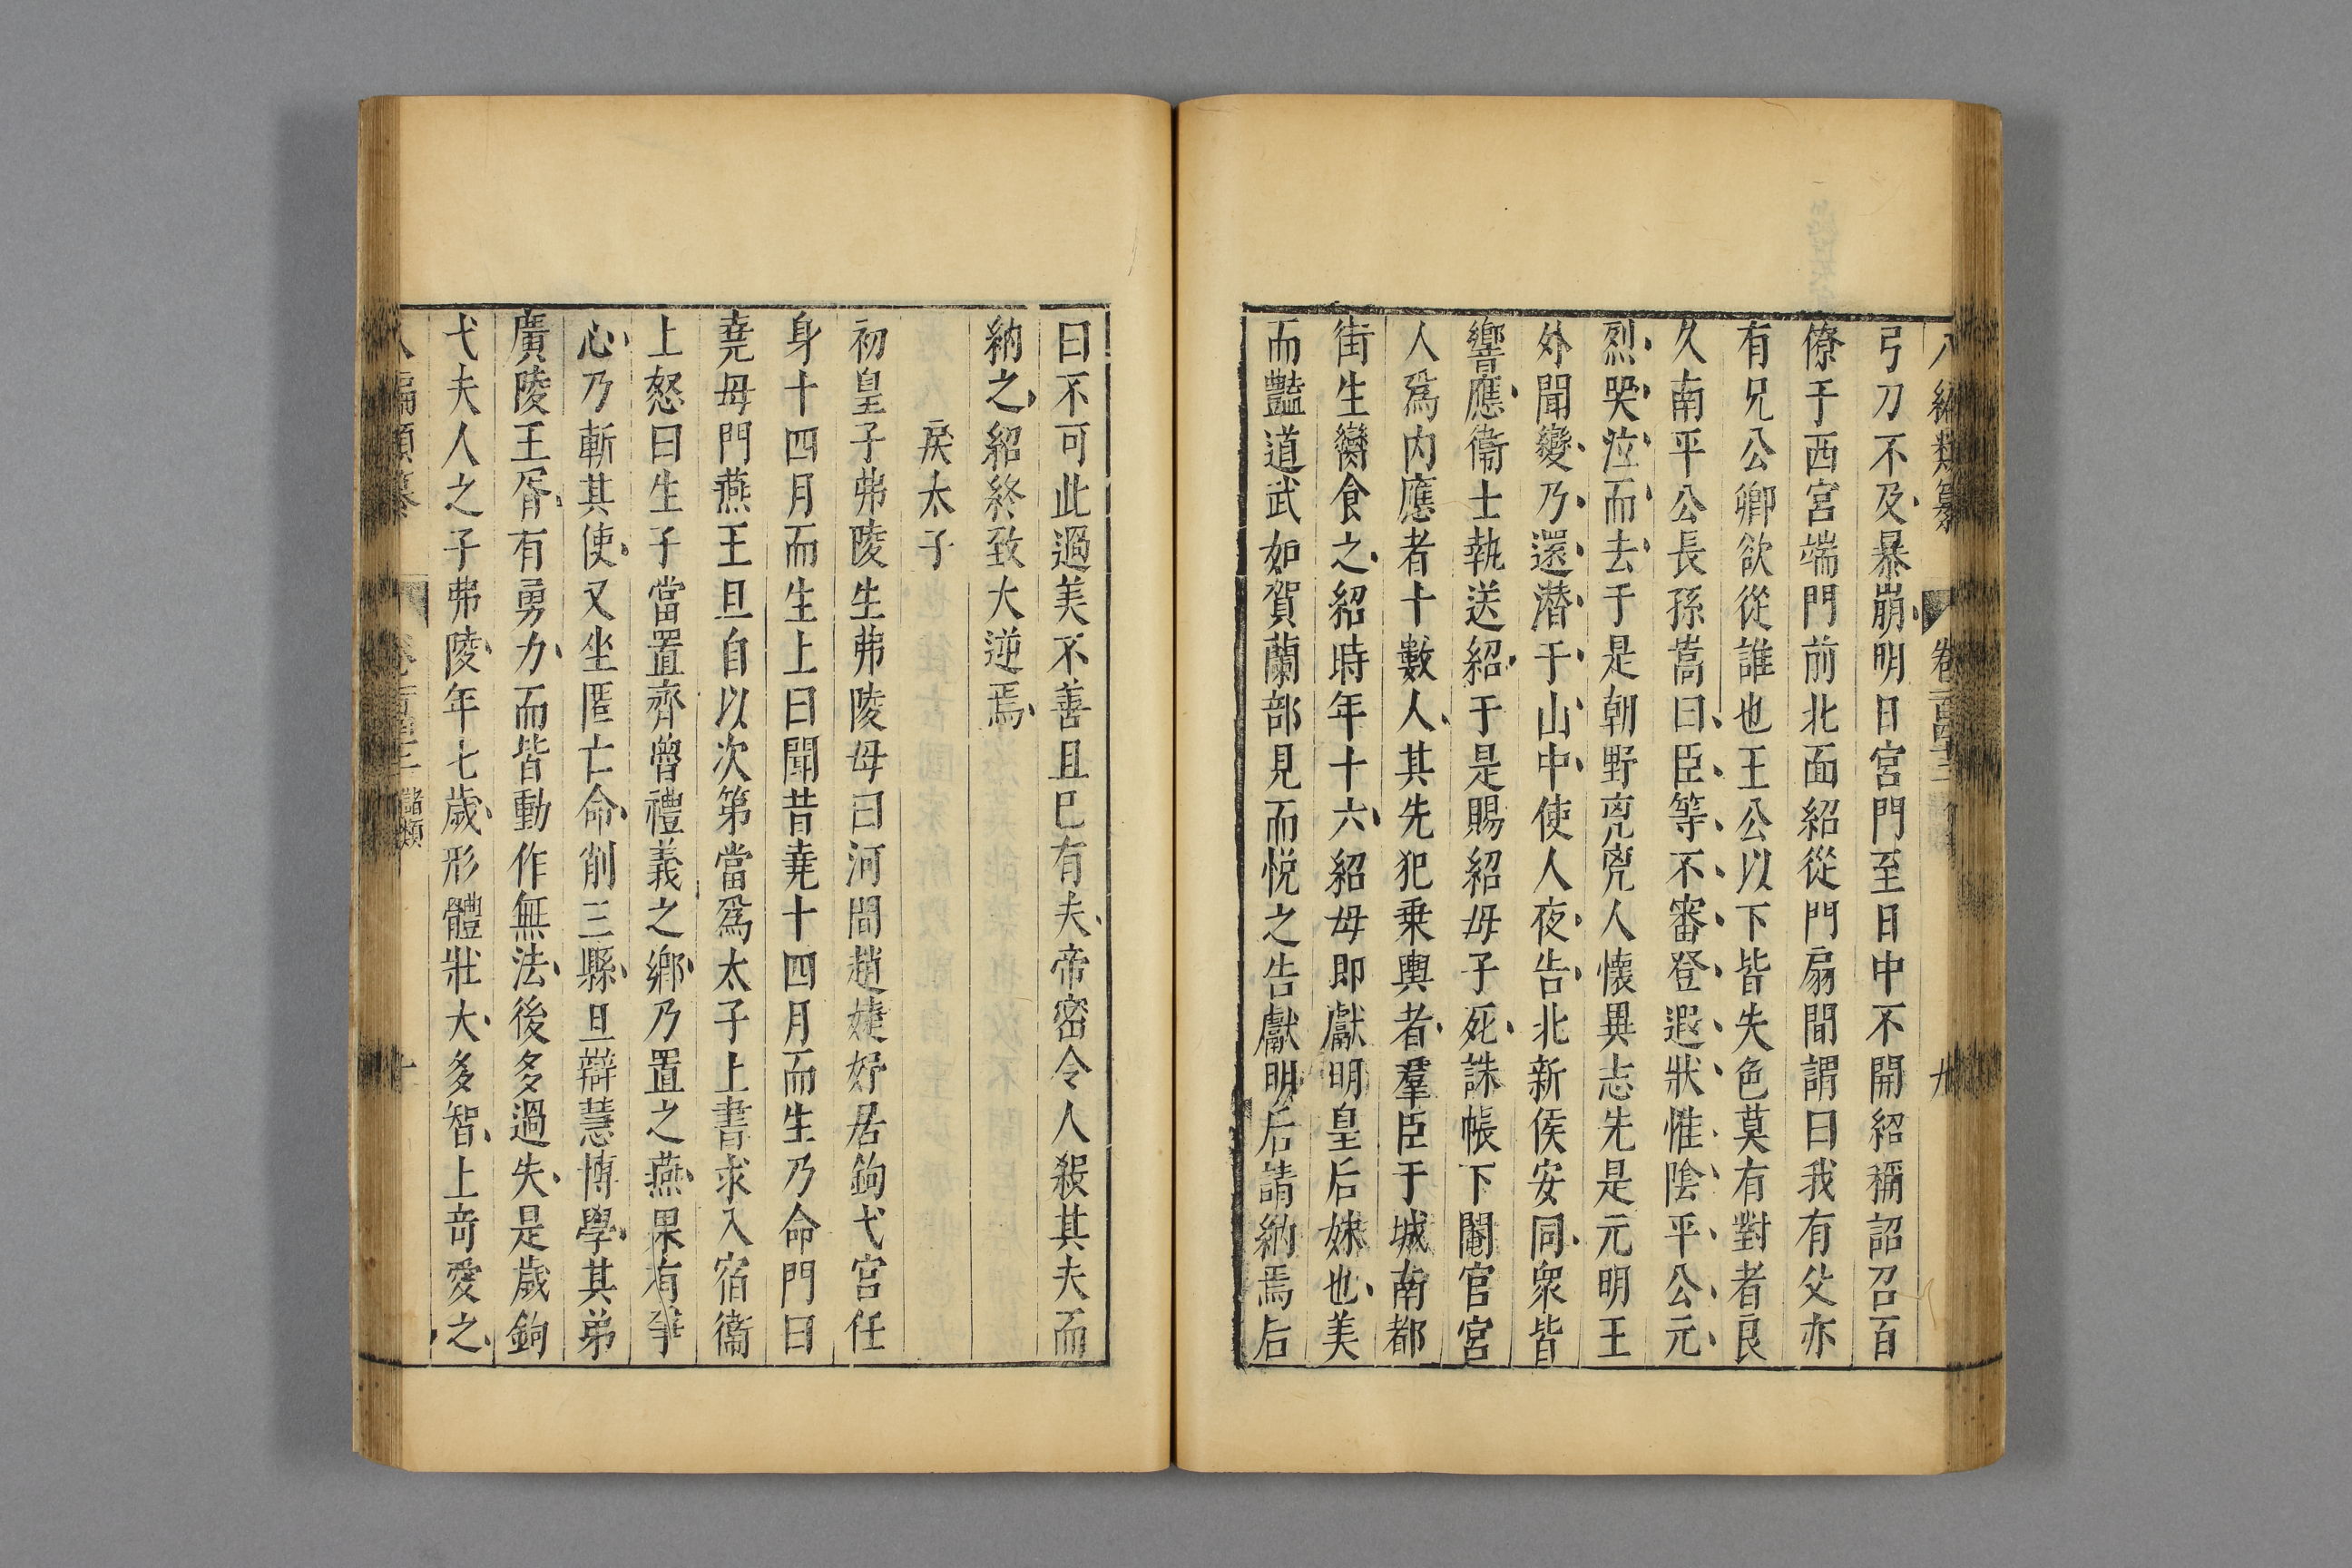 八編類纂 卷一百四十三 九
弓刀不及暴崩明日宮門至日中不開紹稱詔召百
僚于西宮端門前北面紹從門扇間謂曰我有父亦
有兄公卿欲從誰也王公以下皆失色莫有對者良
久南平公長孫嵩曰臣等不審登遐狀惟陰平公元
烈哭泣而去于是朝野兇兇人懷異志先是元明王
外聞變乃還潛于山中使人夜告北新侯安同衆皆
響應衞士執送紹于是賜紹母子死誅帳下閹官宮
人爲内應者十數人其先犯乗輿者羣臣于城南都
街生臠食之紹時年十六紹母即獻明皇后妹也美
而豔道武如賀蘭部見而悦之告獻明后請納焉后
曰不可此過美不善且已有夫帝密令人殺其夫而
納之紹終致大逆焉
戾太子
初皇子弗陵生弗陵母曰河間趙婕妤居鉤弋宮任
身十四月而生上曰聞昔堯十四月而生乃命門曰
堯母門燕王旦自以次第當爲太子上書求入宿衞
上怒曰生子當置齊魯禮義之鄉乃置之燕果有爭
心乃斬其使又坐匿亡命削三縣旦辯慧博學其弟
廣陵王胥有勇力而皆動作無法後多過失是歲鉤
弋夫人之子弗陵年七歲形體壯大多智上竒愛之
八編類纂 儲類 十